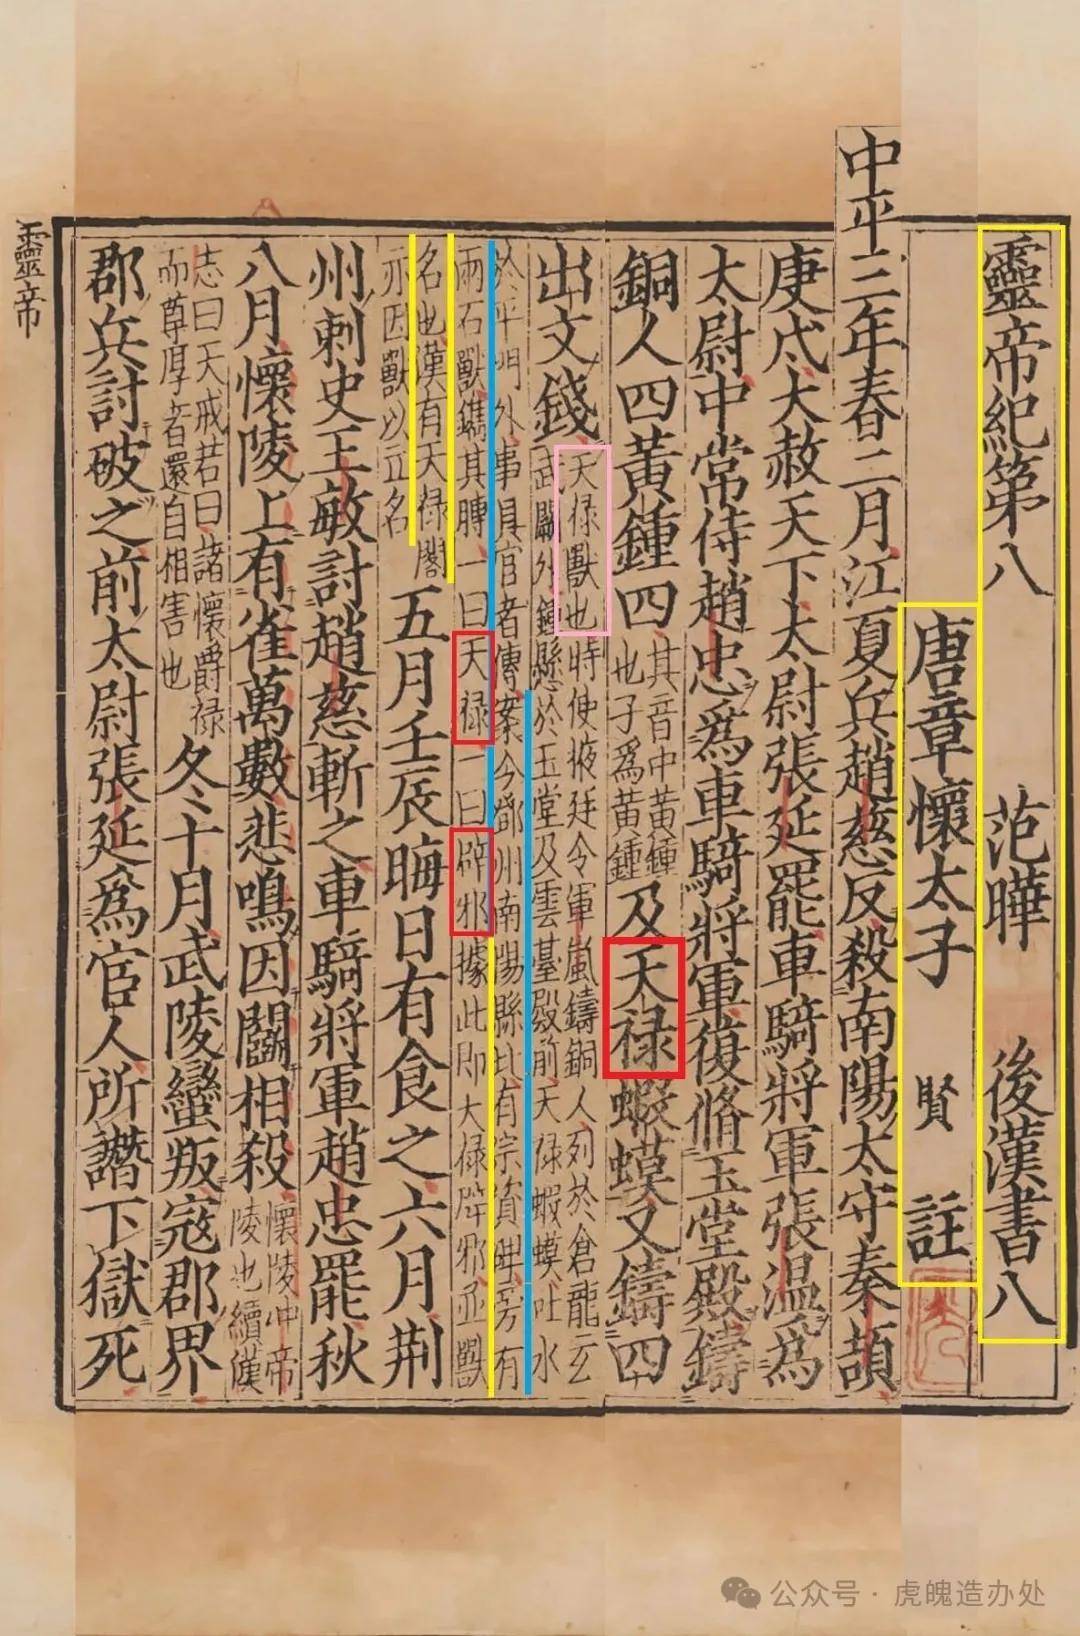 靈帝紀第八 范曄 後漢書八
唐章懷太子 賢 註
中平三年春二月江夏兵趙慈反殺南陽太守秦頡
庚戌大赦天下太尉張延罷車騎將軍張温爲
太尉中常侍趙忠爲車騎將軍復脩玉堂殿鑄
銅人四黃鍾四 其音中黃鍾 也子爲黃鍾 及天禄蝦蟆又鑄四
出文錢 天禄獸也時使掖廷令畢嵐鑄銅人列於倉龍玄
武闕外鍾懸於玉堂及雲臺殿前天禄蝦蟆吐水
於平門外事具宦者傳案今鄧州南陽縣北有宗資碑旁有
兩石獸鐫其膊一曰天禄一曰辟邪據此即天禄辟邪並獸
名也漢有天禄閣 亦因獸以立名 五月壬辰晦日有食之六月荆
州刺史王敏討趙慈斬之車騎將軍趙忠罷秋
八月懷陵上有雀萬數悲鳴因鬭相殺 懷陵冲帝 陵也續漢
志曰天戒若曰諸懷爵禄 而尊厚者還自相害也 冬十月武陵蠻叛寇郡界
郡兵討破之前太尉張延爲宦人所譖下獄死
靈帝
公众号·虎魄造办处